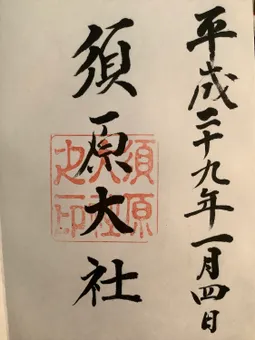 平成二十九年一月四日
須原大社
須原
大社
之印